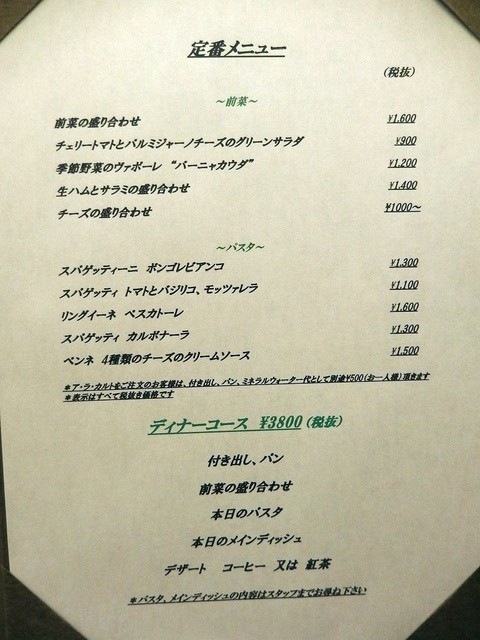 定番メニュー
(税抜)
～前菜～
前菜の盛り合わせ ¥1,600
チェリートマトとパルミジャーノチーズのグリーンサラダ ¥900
季節野菜のヴァポーレ “バーニャカウダ” ¥1,200
生ハムとサラミの盛り合わせ ¥1,400
チーズの盛り合わせ ¥1000～
～パスタ～
スパゲッティーニ ボンゴレビアンコ ¥1,300
スパゲッティ トマトとバジリコ、モッツァレラ ¥1,100
リングイーネ ペスカトーレ ¥1,600
スパゲッティ カルボナーラ ¥1,300
ペンネ 4種類のチーズのクリームソース ¥1,500
＊ア・ラ・カルトをご注文のお客様は、付き出し、パン、ミネラルウォーター代として別途¥500(お一人様)頂きます
＊表示はすべて税抜き価格です
ディナーコース ¥3800(税抜)
付き出し、パン
前菜の盛り合わせ
本日のパスタ
本日のメインディッシュ
デザート コーヒー 又は 紅茶
＊パスタ、メインディッシュの内容はスタッフまでお尋ね下さい